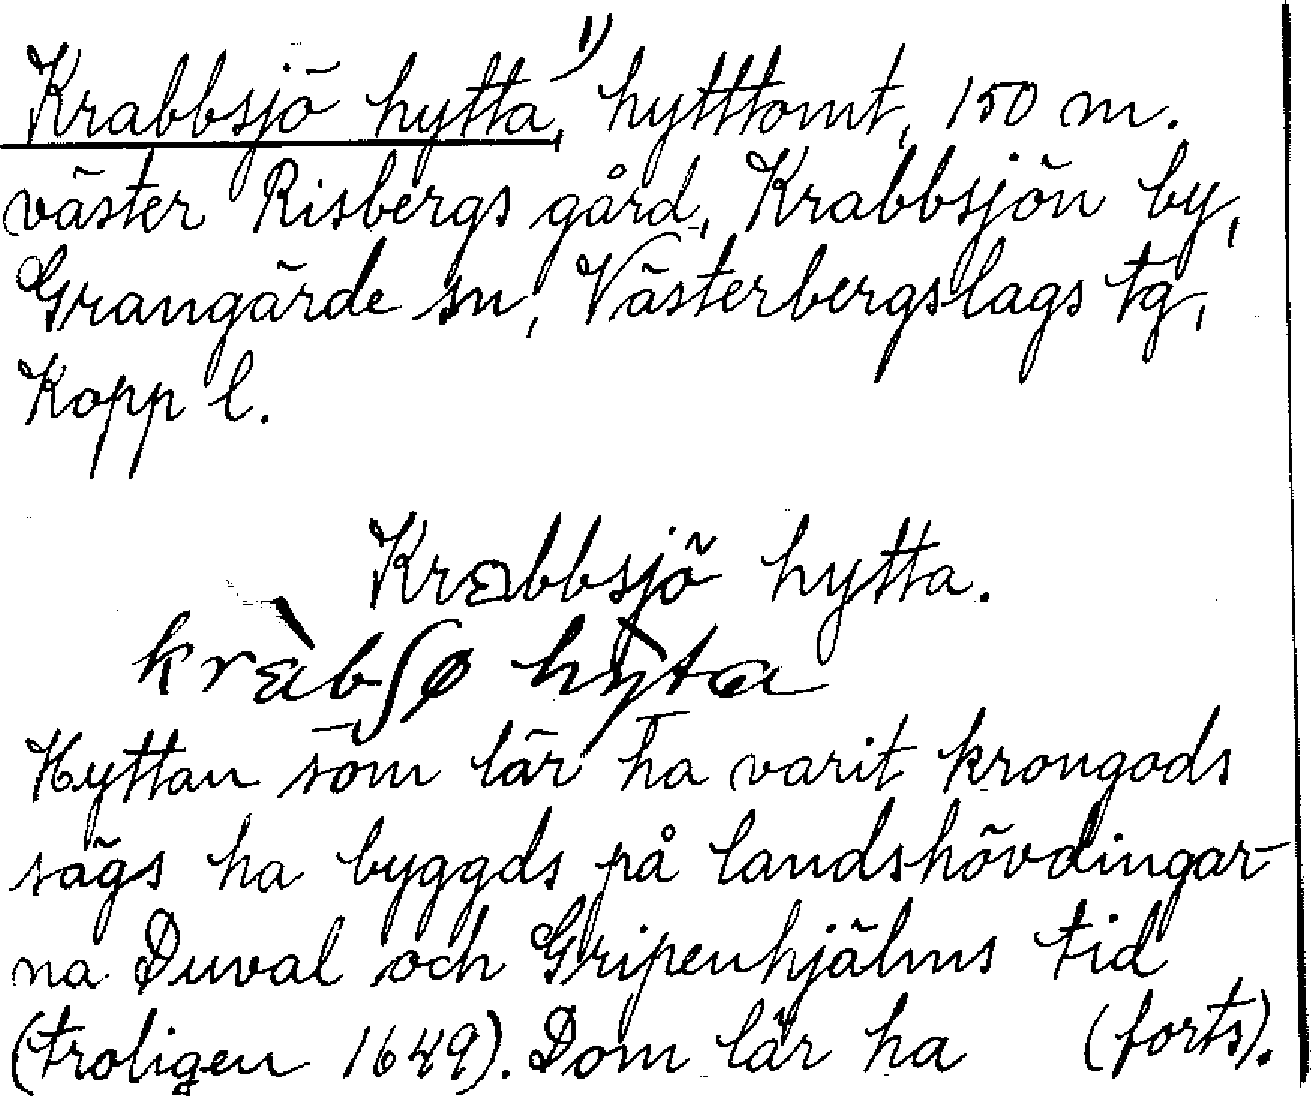 Krabbsjö hytta,¹⁾ hytttomt, 150 m.
väster Risbergs gård, Krabbsjön by,
Grangärde sn, Västerbergslags tg,
Kopp l.
Krabbsjö hytta.
kràbʃø hỳta
Hyttan som lär ha varit krongods
sägs ha byggds på landshövdingar-
na Duval och Gripenhjälms tid
(troligen 1649). Dom lär ha (forts).